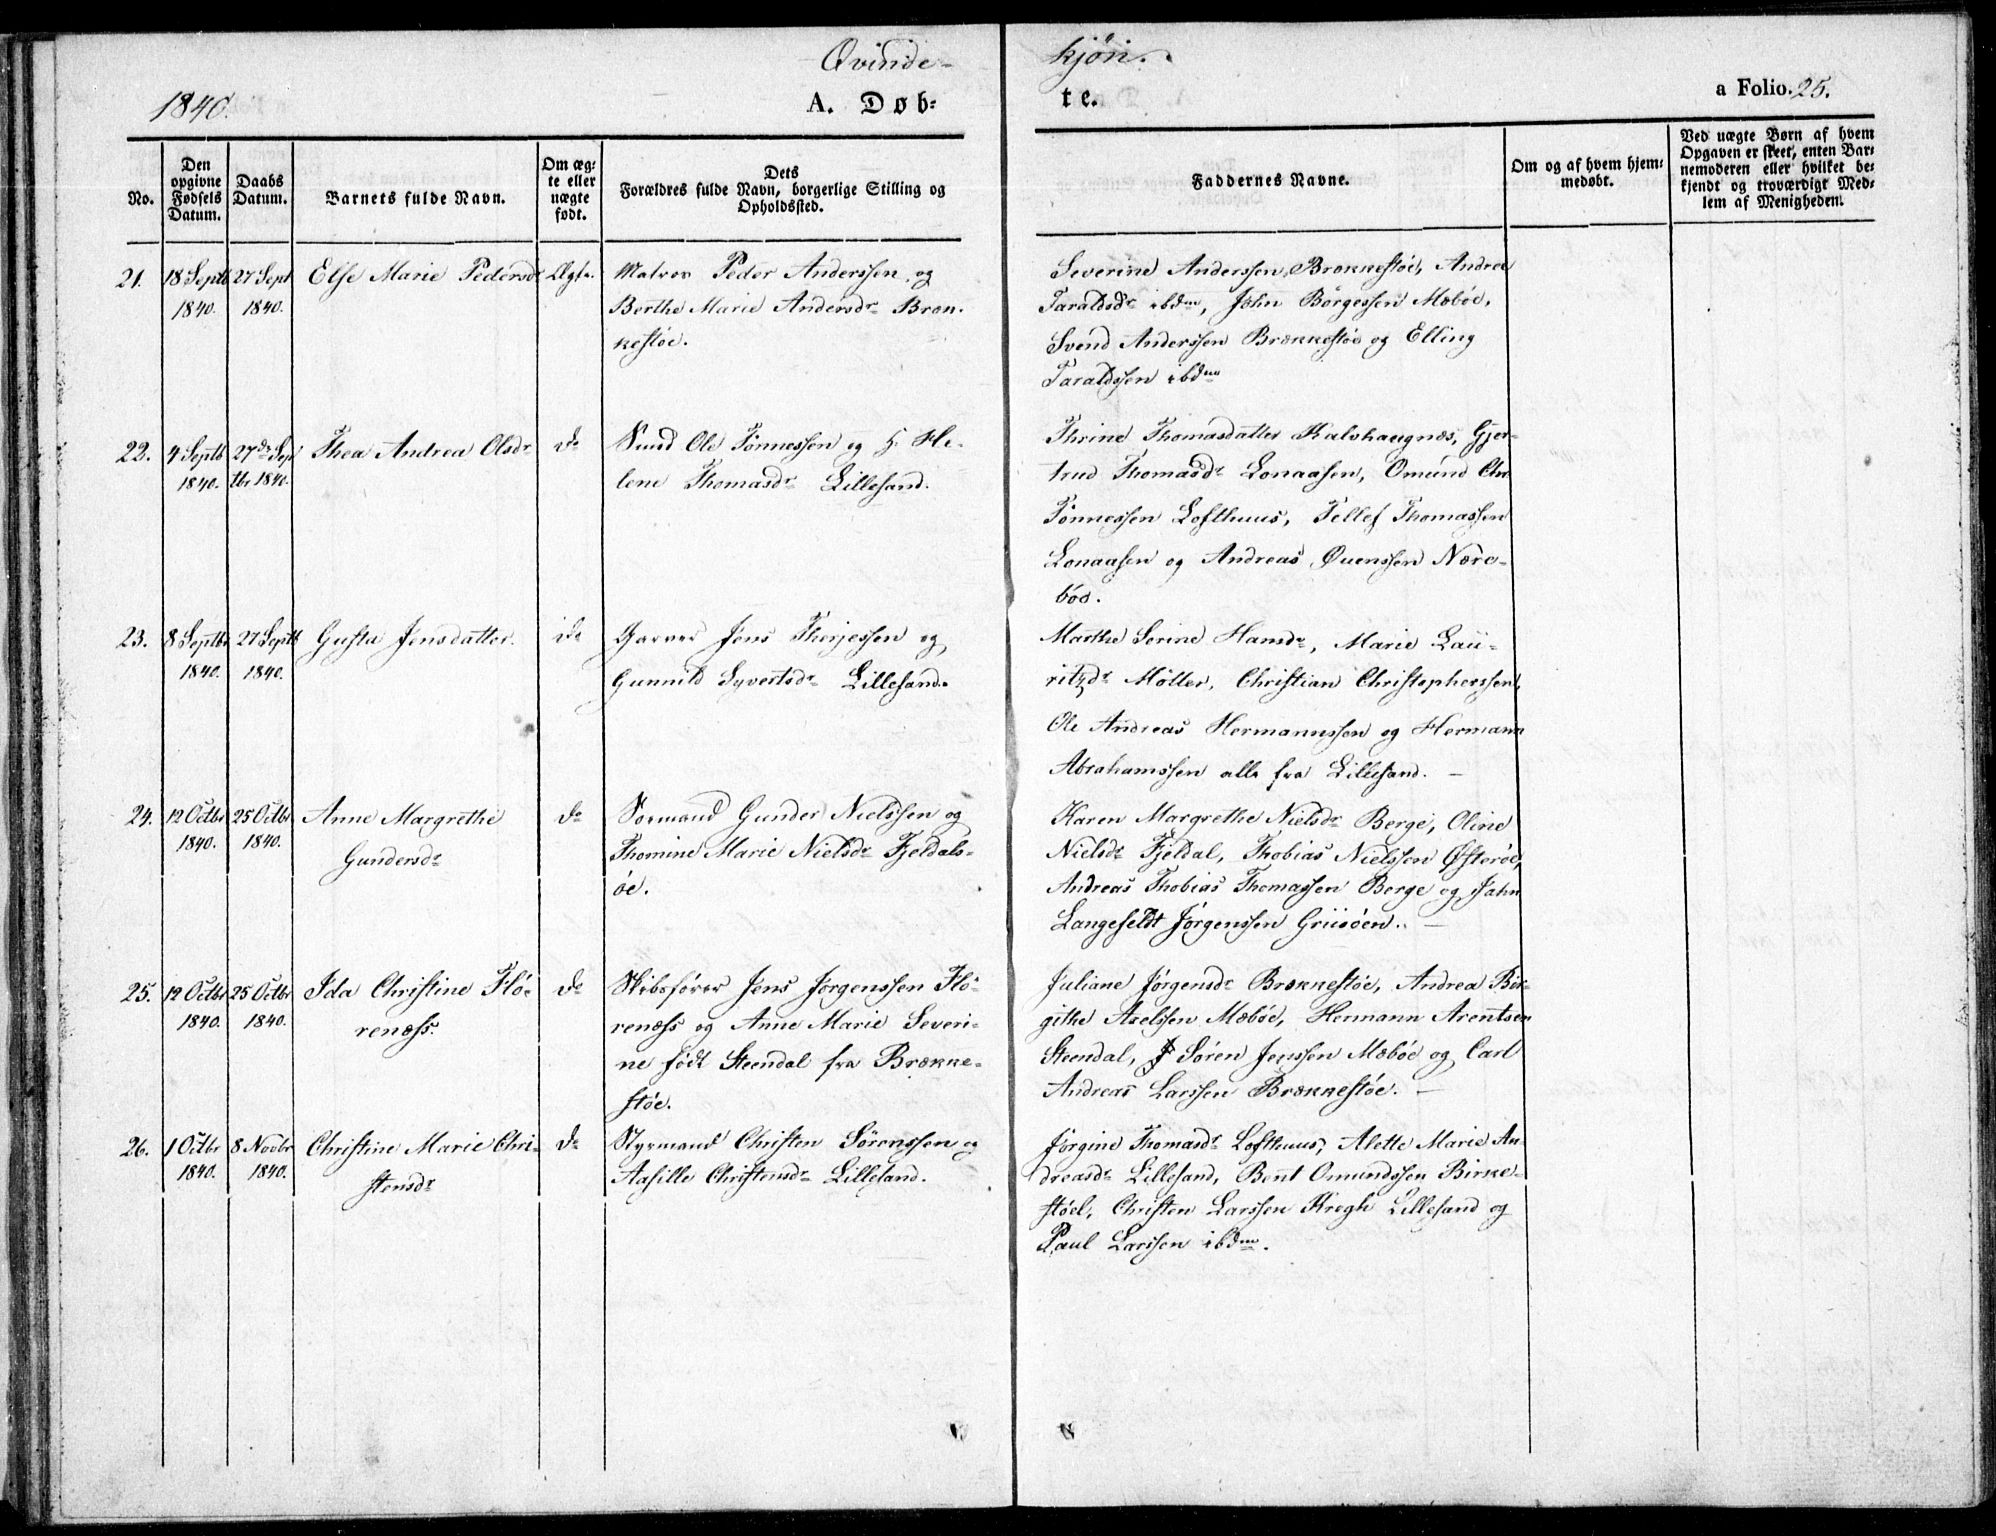 Qvinde-
kjøn.
1840.
A. Døb=
te.
a Folio. 25.
No.
Den
opgivne
Fødsels
Datum.
Daabs
Datum.
Barnets fulde Navn.
Om æg=
te eller
uægte
født.
Dets
Forældres fulde Navn, borgerlige Stilling og
Opholdssted.
Faddernes Navne.
Om og af hvem hjem=
medøbt.
Ved uægte Børn af hvem
Opgaven er skeet, enten Bar=
nemoderen eller hvilket be=
kjendt og troværdigt Med=
lem af Menigheden.
21.
18 Septb
1840.
27 Sept
1840.
Else Marie Pedersdr
Ægte.
Matros Peder Anderssen og
Berthe Marie Andersdr Bræn.
kestøe.
Severine Anderssen Brækkestøe, Andrea
Taraldsdr ibdm, John Børgessen Mæbøe,
Svend Anderssen Brækkestøe og Elling
Taraldssen ibdm
22.
4 Septb
1840.
27de Sep
tbr 1840.
Thea Andrea Olsdr
do
Ole Tønnessen og H. He-
lene Thomasdr Lillesand.
Thrine Thomasdatter Kalvhaugnæs, Gjer-
trud Thomasdr Lonaasen, Omund Chr
Tønnessen Lofthuus, Tellef Thomassen
Lonaasen og Andreas Øuenssen Nære-
bøe.
23.
8 Septbr
1840.
27 Septb
1840.
Gusta Jensdatter.
do
Garver Jens Therjessen og
Gunnild Syvertsdr Lillesand.
Marthe Serine Hansdr, Marie Lau-
ritzdr Møller, Christian Christopherssen,
Ole Andreas Hermannssen og Hermann
Abrahamssen alle fra Lillesand. —
24.
12 Octbr
1840.
25 Octbr
1840.
Anne Margrethe
Gundersdr
do
Sormand Gunder Nielssen og
Thomine Marie Nielsdr Fjeldals-
øe.
Karen Margrethe Nielsdr Berge, Oline
Nielsdr Fjeldal, Thobias Nielssen Østerøe,
Andreas Thobias Thomassen Berge og Jahn
Langefeldt Jørgenssen Griisøen. —
25.
12 Octbr
1840.
25 Octbr
1840.
Ida Christine Flö-
renæss.
do
Skibsfører Jens Jørgenssen Flö-
renæss og Anne Marie Severi-
ne født Steendal fra Brække-
støe.
Juliane Jørgensdr Brækkestøe, Andrea Bir-
githe Axelssen Mæbøe, Hermann Arentsen
Steendal, Søren Jenssen Mæbøe og Carl
Andreas Larssen Brækkestøe. —
26.
1 Octbr
1840.
8 Novbr
1840.
Christine Marie Chri-
stensdr
do
Styrmand Christen Sørenssen og
Aasille Christensdr Lillesand.
Jørgine Thomasdr Lofthuus, Alette Marie An-
dreasdr Lillesand, Bent Omundssen Birke-
støel, Christen Larssen Krogh Lillesand og
Paul Larssen ibdm.